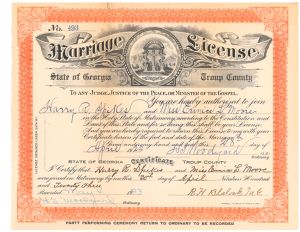 No. 493
Marriage License
State of Georgia Troup County
TO ANY JUDGE, JUSTICE OF THE PEACE, OR MINISTER OF THE GOSPEL:
You are hereby authorized to join
Harry R. Spikes and Miss Eunice L. Moore
in the Holy State of Matrimony according to the Constitution and
Laws of this State and for so doing this shall be your License
And you are hereby required to return this License to me with your
Certificate hereon of the fact and date of the Marriage.
Given under my hand and seal this
April
STATE OF GEORGIA CERTIFICATE TROUP COUNTY
I Certify that Harry R. Spikes and Miss Eunice L. Moore
were joined in Matrimony by me this day of April Nineteen Hundred
and Twenty three
PARTY PERFORMING CEREMONY RETURN TO ORDINARY TO BE RECORDED